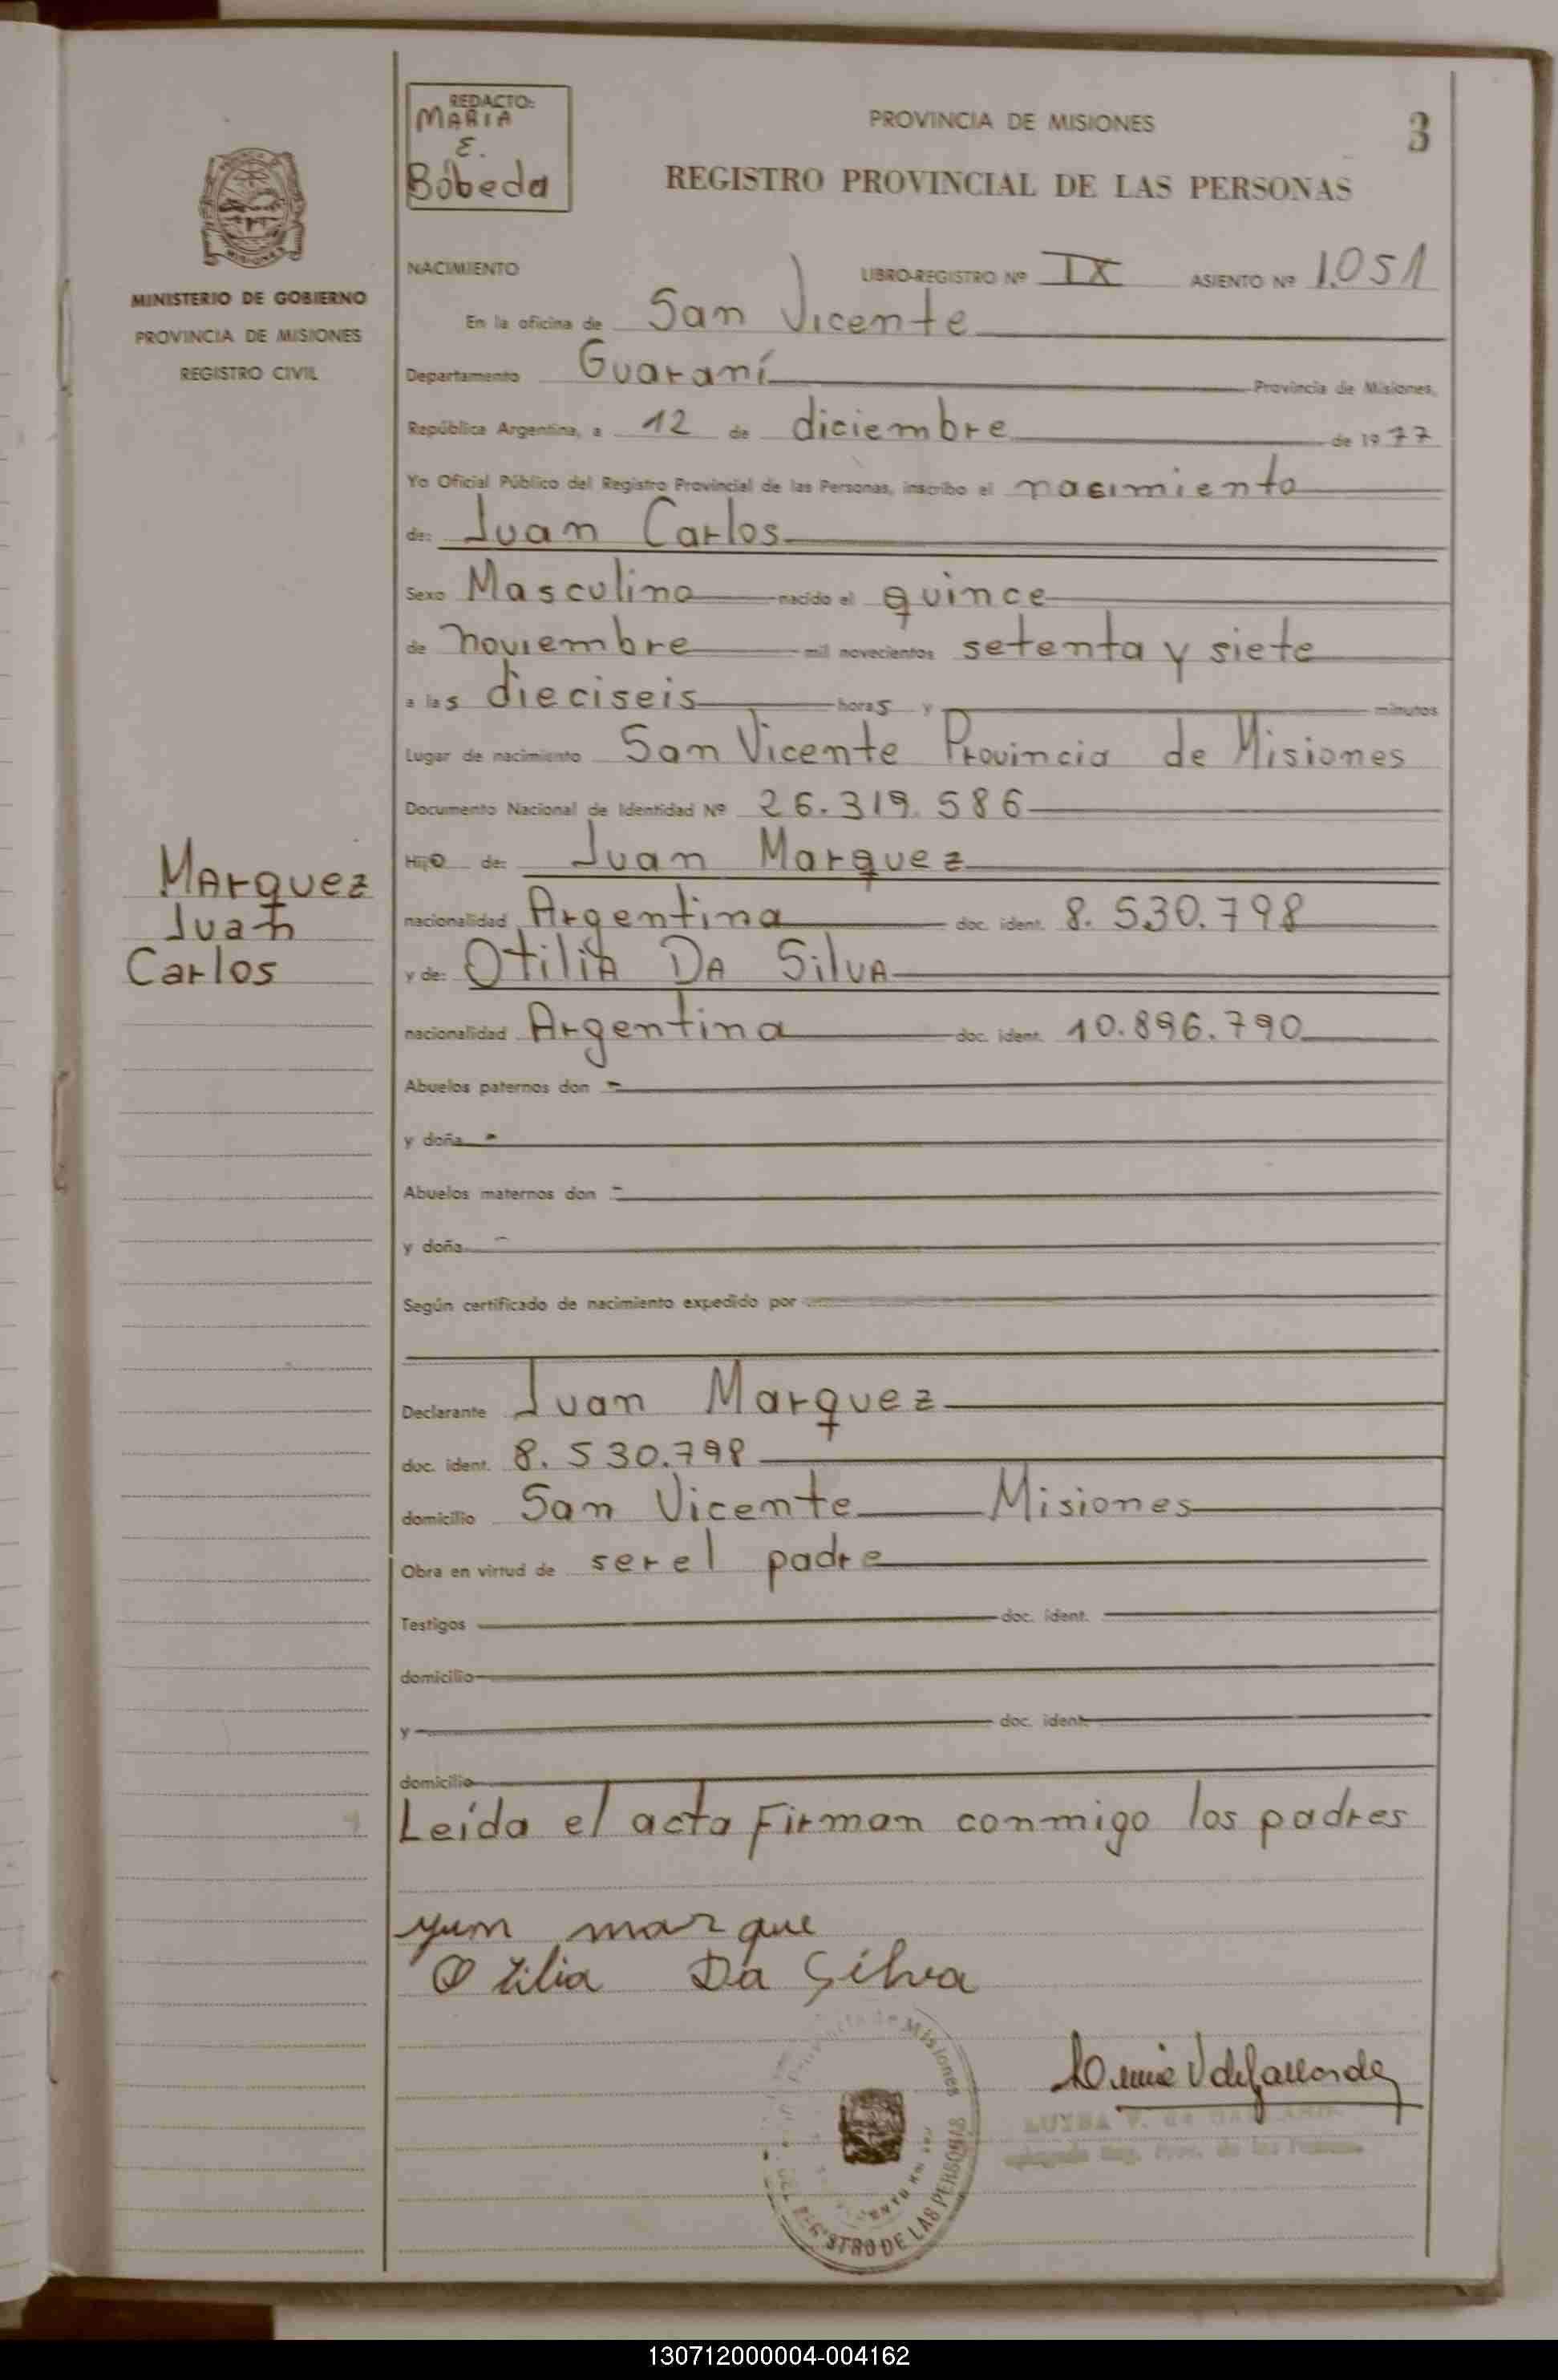 REDACTO:
MARIA
E.
Bóbeda
PROVINCIA DE MISIONES
3
REGISTRO PROVINCIAL DE LAS PERSONAS
MISIONES
MINISTERIO DE GOBIERNO
PROVINCIA DE MISIONES
REGISTRO CIVIL
NACIMIENTO LIBRO-REGISTRO Nº IX ASIENTO Nº 1.051
En la oficina de San Vicente
Departamento Guaraní Provincia de Misiones,
República Argentina, a 12 de diciembre de 1977
Yo Oficial Público del Registro Provincial de las Personas, inscribo el nacimiento
de: Juan Carlos
Sexo Masculino nacido el quince
de noviembre mil novecientos setenta y siete
a las dieciseis horas y minutos
Lugar de nacimiento San Vicente Provincia de Misiones
Documento Nacional de Identidad Nº 26.319.586
Hijo de: Juan Marquez
Marquez
Juan
Carlos
nacionalidad Argentina doc. ident. 8.530.798
y de: Otilia DA SilvA
nacionalidad Argentina doc. ident. 10.896.790
Abuelos paternos don -
y doña -
Abuelos maternos don -
y doña -
Según certificado de nacimiento expedido por
Declarante Juan Marquez
doc. ident. 8.530.798
domicilio San Vicente Misiones
Obra en virtud de ser el padre
Testigos doc. ident.
domicilio
y doc. ident.
domicilio
Leída el acta Firman conmigo los padres
marque
Otilia Da Silva
Provincia de Misiones
REGISTRO DE LAS PERSONAS
130712000004-004162